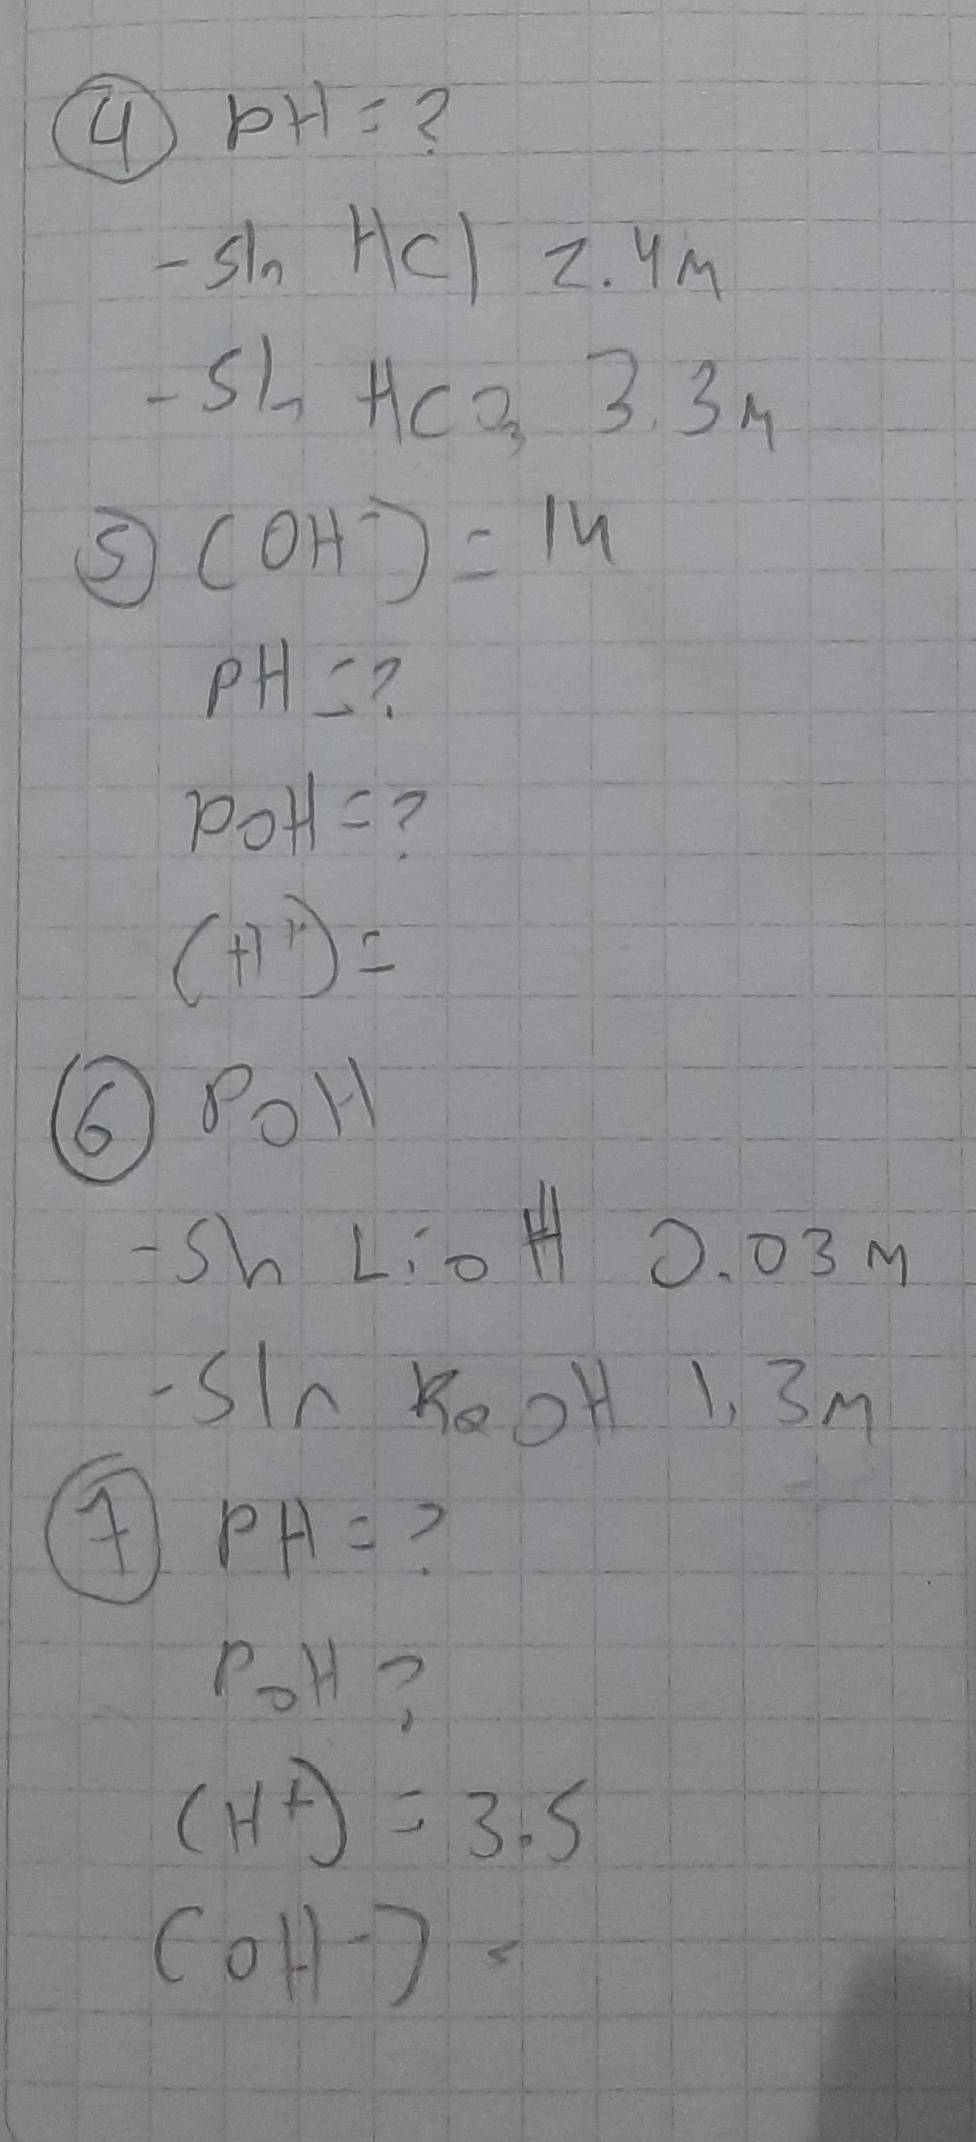 ④ pH = ?
- Sln HCl 2.4M
- Sln HCO₃ 3.3M
⑤ (OH⁻) = 14
PH = ?
POH = ?
(H⁺) =
⑥ POH
- Sln LiOH 0.03M
- Sln KOH 1.3M
⑦ PH = ?
POH ?
(H⁺) = 3.5
(OH-) =